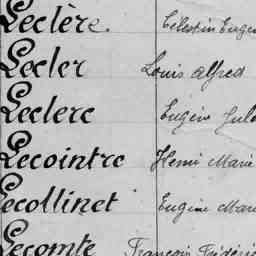 Leclère. Célestin Eugen
Lecler Louis Alfred
Leclerc Eugène Jule
Lecointre Henri Marie
Lecollinet Eugène Mari
Lecomte François Frédéric